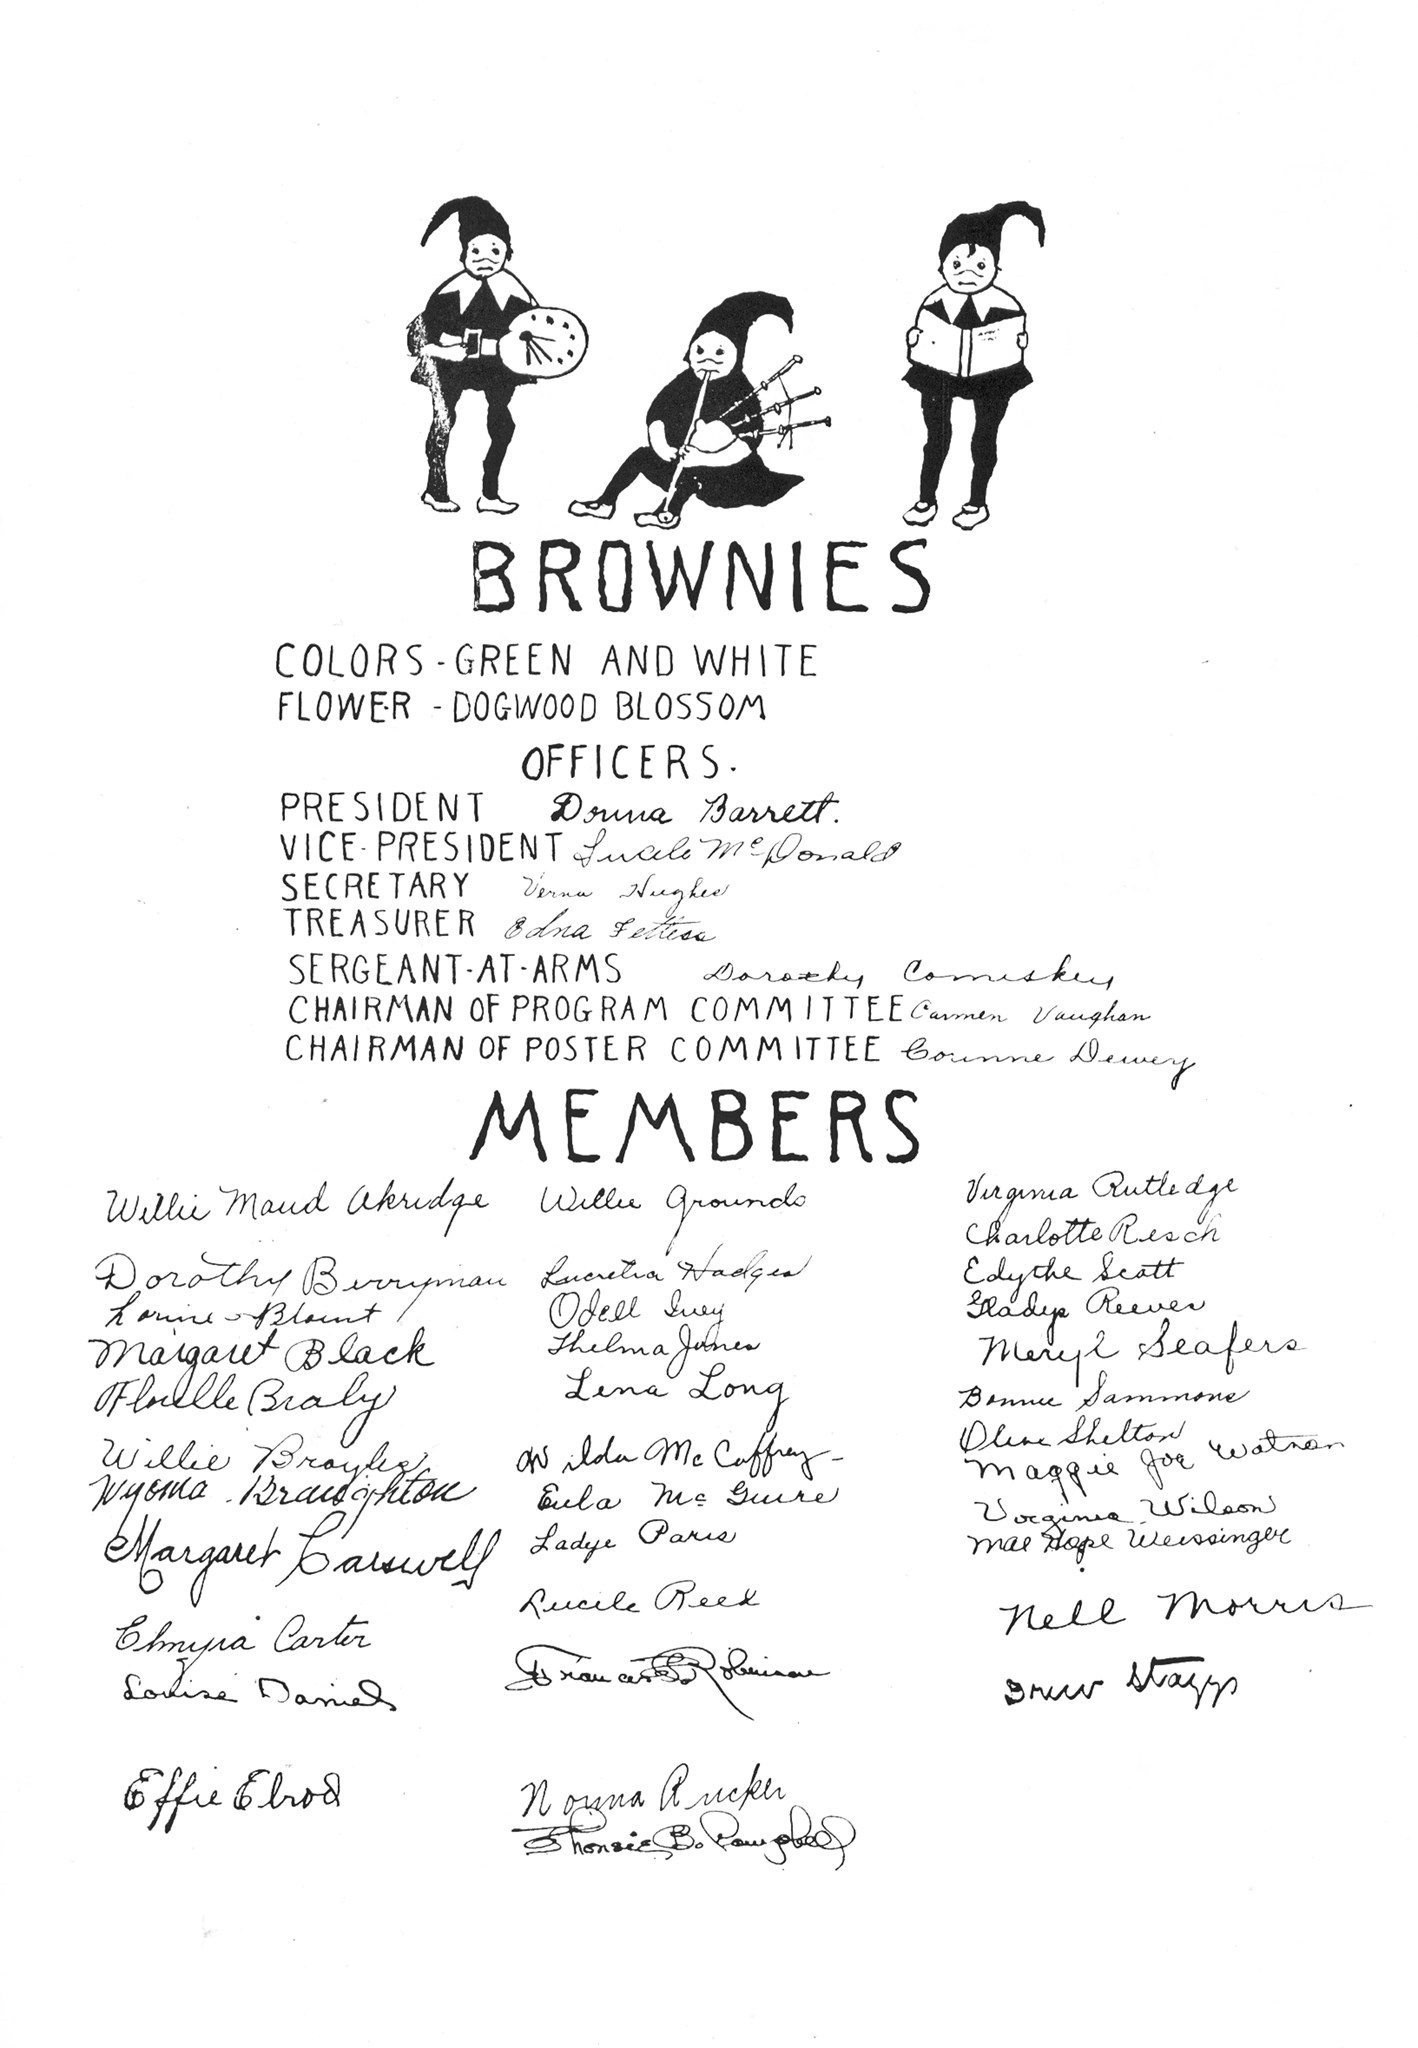 BROWNIES
COLORS - GREEN AND WHITE
FLOWER - DOGWOOD BLOSSOM
OFFICERS.
PRESIDENT Donna Barrett.
VICE-PRESIDENT Lucile McDonald
SECRETARY Verna Hughes
TREASURER Edna
SERGEANT-AT-ARMS Dorothy Comiskey
CHAIRMAN OF PROGRAM COMMITTEE Carmen Vaughan
CHAIRMAN OF POSTER COMMITTEE Corinne Dewey
MEMBERS
Willie Maud Akridge
Dorothy Berryman
Lorine Blount
Margaret Black
Florelle Braly
Willie Broyles
Wyoma Braughton
Margaret Carswell
Carter
Louise Daniels
Effie Elrod
Willie Grounds
Lucretia Hodges
Odell Ivey
Thelma Jones
Lena Long
Wilda McCaffrey
Eula McGuire
Ladye Paris
Lucile Reed
Frances Robinson
Norma Rucker
B. Campbell
Virginia Rutledge
Charlotte Resch
Edythe Scott
Gladys Reeves
Meryl Seafers
Bonnie Sammons
Oline Shelton
Maggie Joe Watson
Virginia Wilson
Mae Hope Weissinger
Nell Morris
Drew Staggs